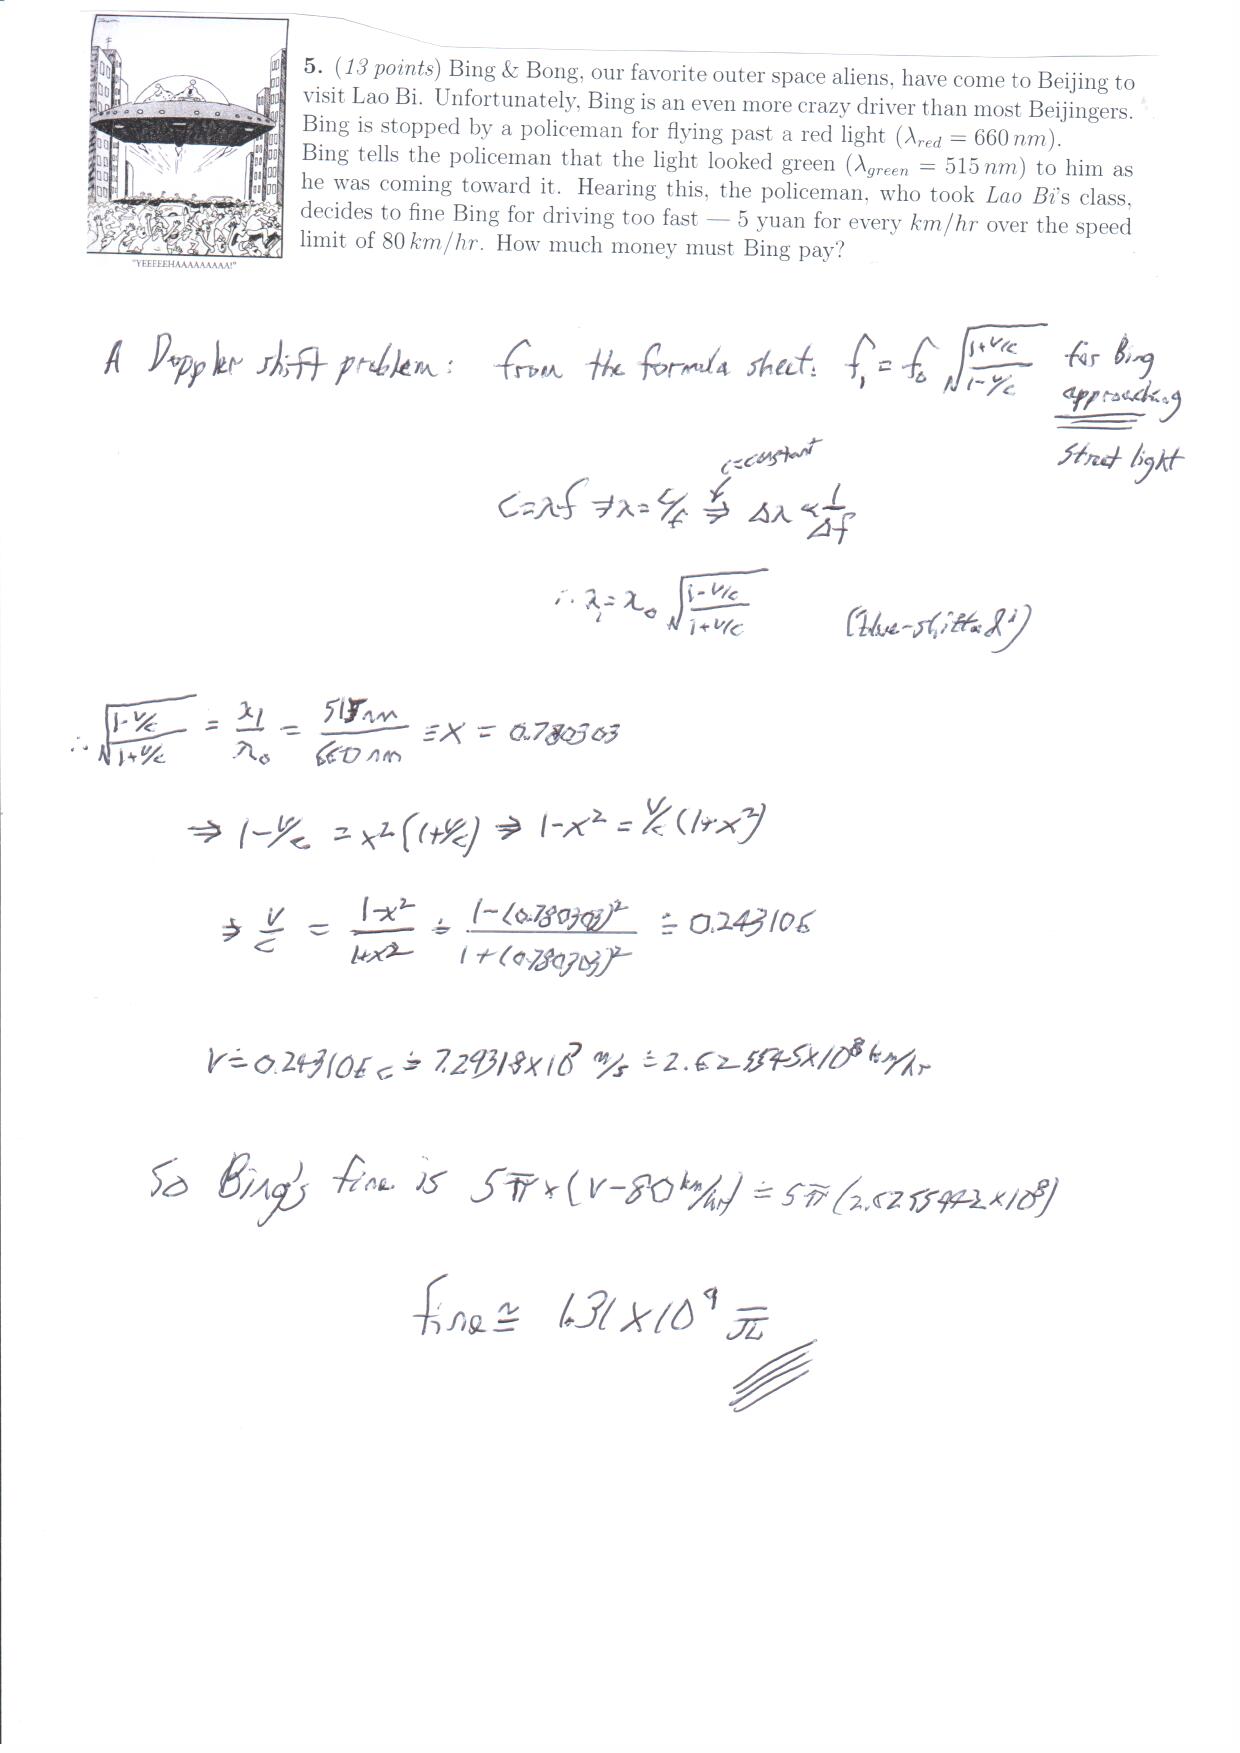 5. (13 points) Bing & Bong, our favorite outer space aliens, have come to Beijing to
visit Lao Bi. Unfortunately, Bing is an even more crazy driver than most Beijingers.
Bing is stopped by a policeman for flying past a red light (λred = 660 nm).
Bing tells the policeman that the light looked green (λgreen = 515 nm) to him as
he was coming toward it. Hearing this, the policeman, who took Lao Bi's class,
decides to fine Bing for driving too fast — 5 yuan for every km/hr over the speed
limit of 80 km/hr. How much money must Bing pay?
"YEEEEEHAAAAAAAAA!"
A Doppler shift problem: from the formula sheet: f₁ = f₀ √((1+v/c)/(1-v/c)) for Bing
approaching
street light
c=constant
c=λf ⇒ λ=c/f ⇒ Δλ ∝ 1/Δf
∴ λ₁ = λ₀ √((1-v/c)/(1+v/c)) (blue-shifted!)
∴ √((1-v/c)/(1+v/c)) = λ₁/λ₀ = 515 nm/660 nm ≡ x = 0.780303
⇒ 1-v/c = x²(1+v/c) ⇒ 1-x² = v/c (1+x²)
⇒ v/c = (1-x²)/(1+x²) ≐ (1-(0.780303)²)/(1+(0.780303)²) ≐ 0.243106
v ≐ 0.243106 c ≐ 7.29318×10⁷ m/s ≐ 2.6255545×10⁸ km/hr
So Bing's fine is 5元×(v-80 km/hr) ≐ 5元(2.6255442×10⁸)
fine ≅ 1.31×10⁹ 元